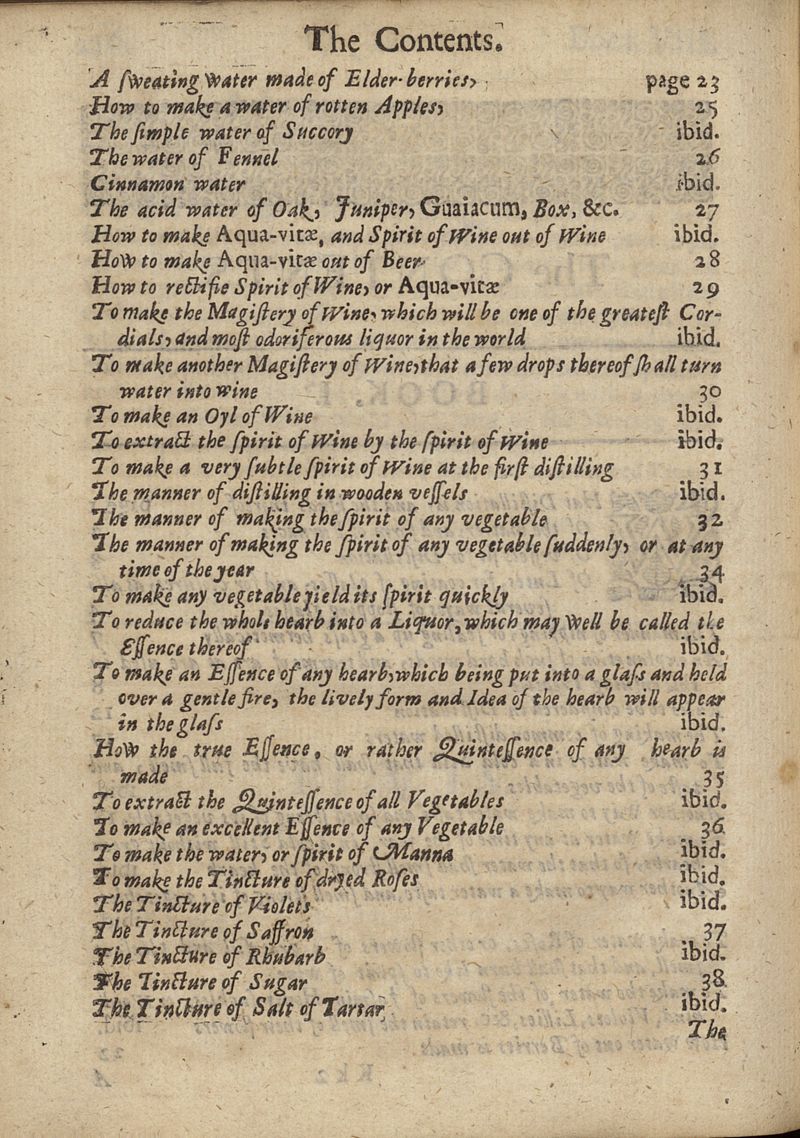 The Contents.
A ſweating water made of Elder-berries, page 23
How to make a water of rotten Apples, 25
The ſimple water of Succory ibid.
The water of Fennel 26
Cinnamon water ibid.
The acid water of Oak, Juniper, Guaiacum, Box, &c. 27
How to make Aqua-vitæ, and Spirit of Wine out of Wine ibid.
How to make Aqua-vitæ out of Beer 28
How to rectifie Spirit of Wine, or Aqua-vitæ 29
To make the Magiſtery of Wine, which will be one of the greateſt Cor-
dials, and moſt odoriferous liquor in the world ibid.
To make another Magiſtery of Wine, that a few drops thereof ſhall turn
water into wine 30
To make an Oyl of Wine ibid.
To extract the ſpirit of Wine by the ſpirit of Wine ibid.
To make a very ſubtle ſpirit of Wine at the firſt diſtilling 31
The manner of diſtilling in wooden veſſels ibid.
The manner of making the ſpirit of any vegetable 32
The manner of making the ſpirit of any vegetable ſuddenly, or at any
time of the year 34
To make any vegetable yield its ſpirit quickly ibid.
To reduce the whole hearb into a Liquor, which may well be called the
Eſſence thereof ibid.
To make an Eſſence of any hearb, which being put into a glaſs and held
over a gentle fire, the lively form and Idea of the hearb will appear
in the glaſs ibid.
How the true Eſſence, or rather Quinteſſence of any hearb is
made 35
To extract the Quinteſſence of all Vegetables ibid.
To make an excellent Eſſence of any Vegetable 36
To make the water, or ſpirit of Manna ibid.
To make the Tincture of dryed Roſes ibid.
The Tincture of Violets ibid.
The Tincture of Saffron 37
The Tincture of Rhubarb ibid.
The Tincture of Sugar 38
The Tincture of Salt of Tartar ibid.
The